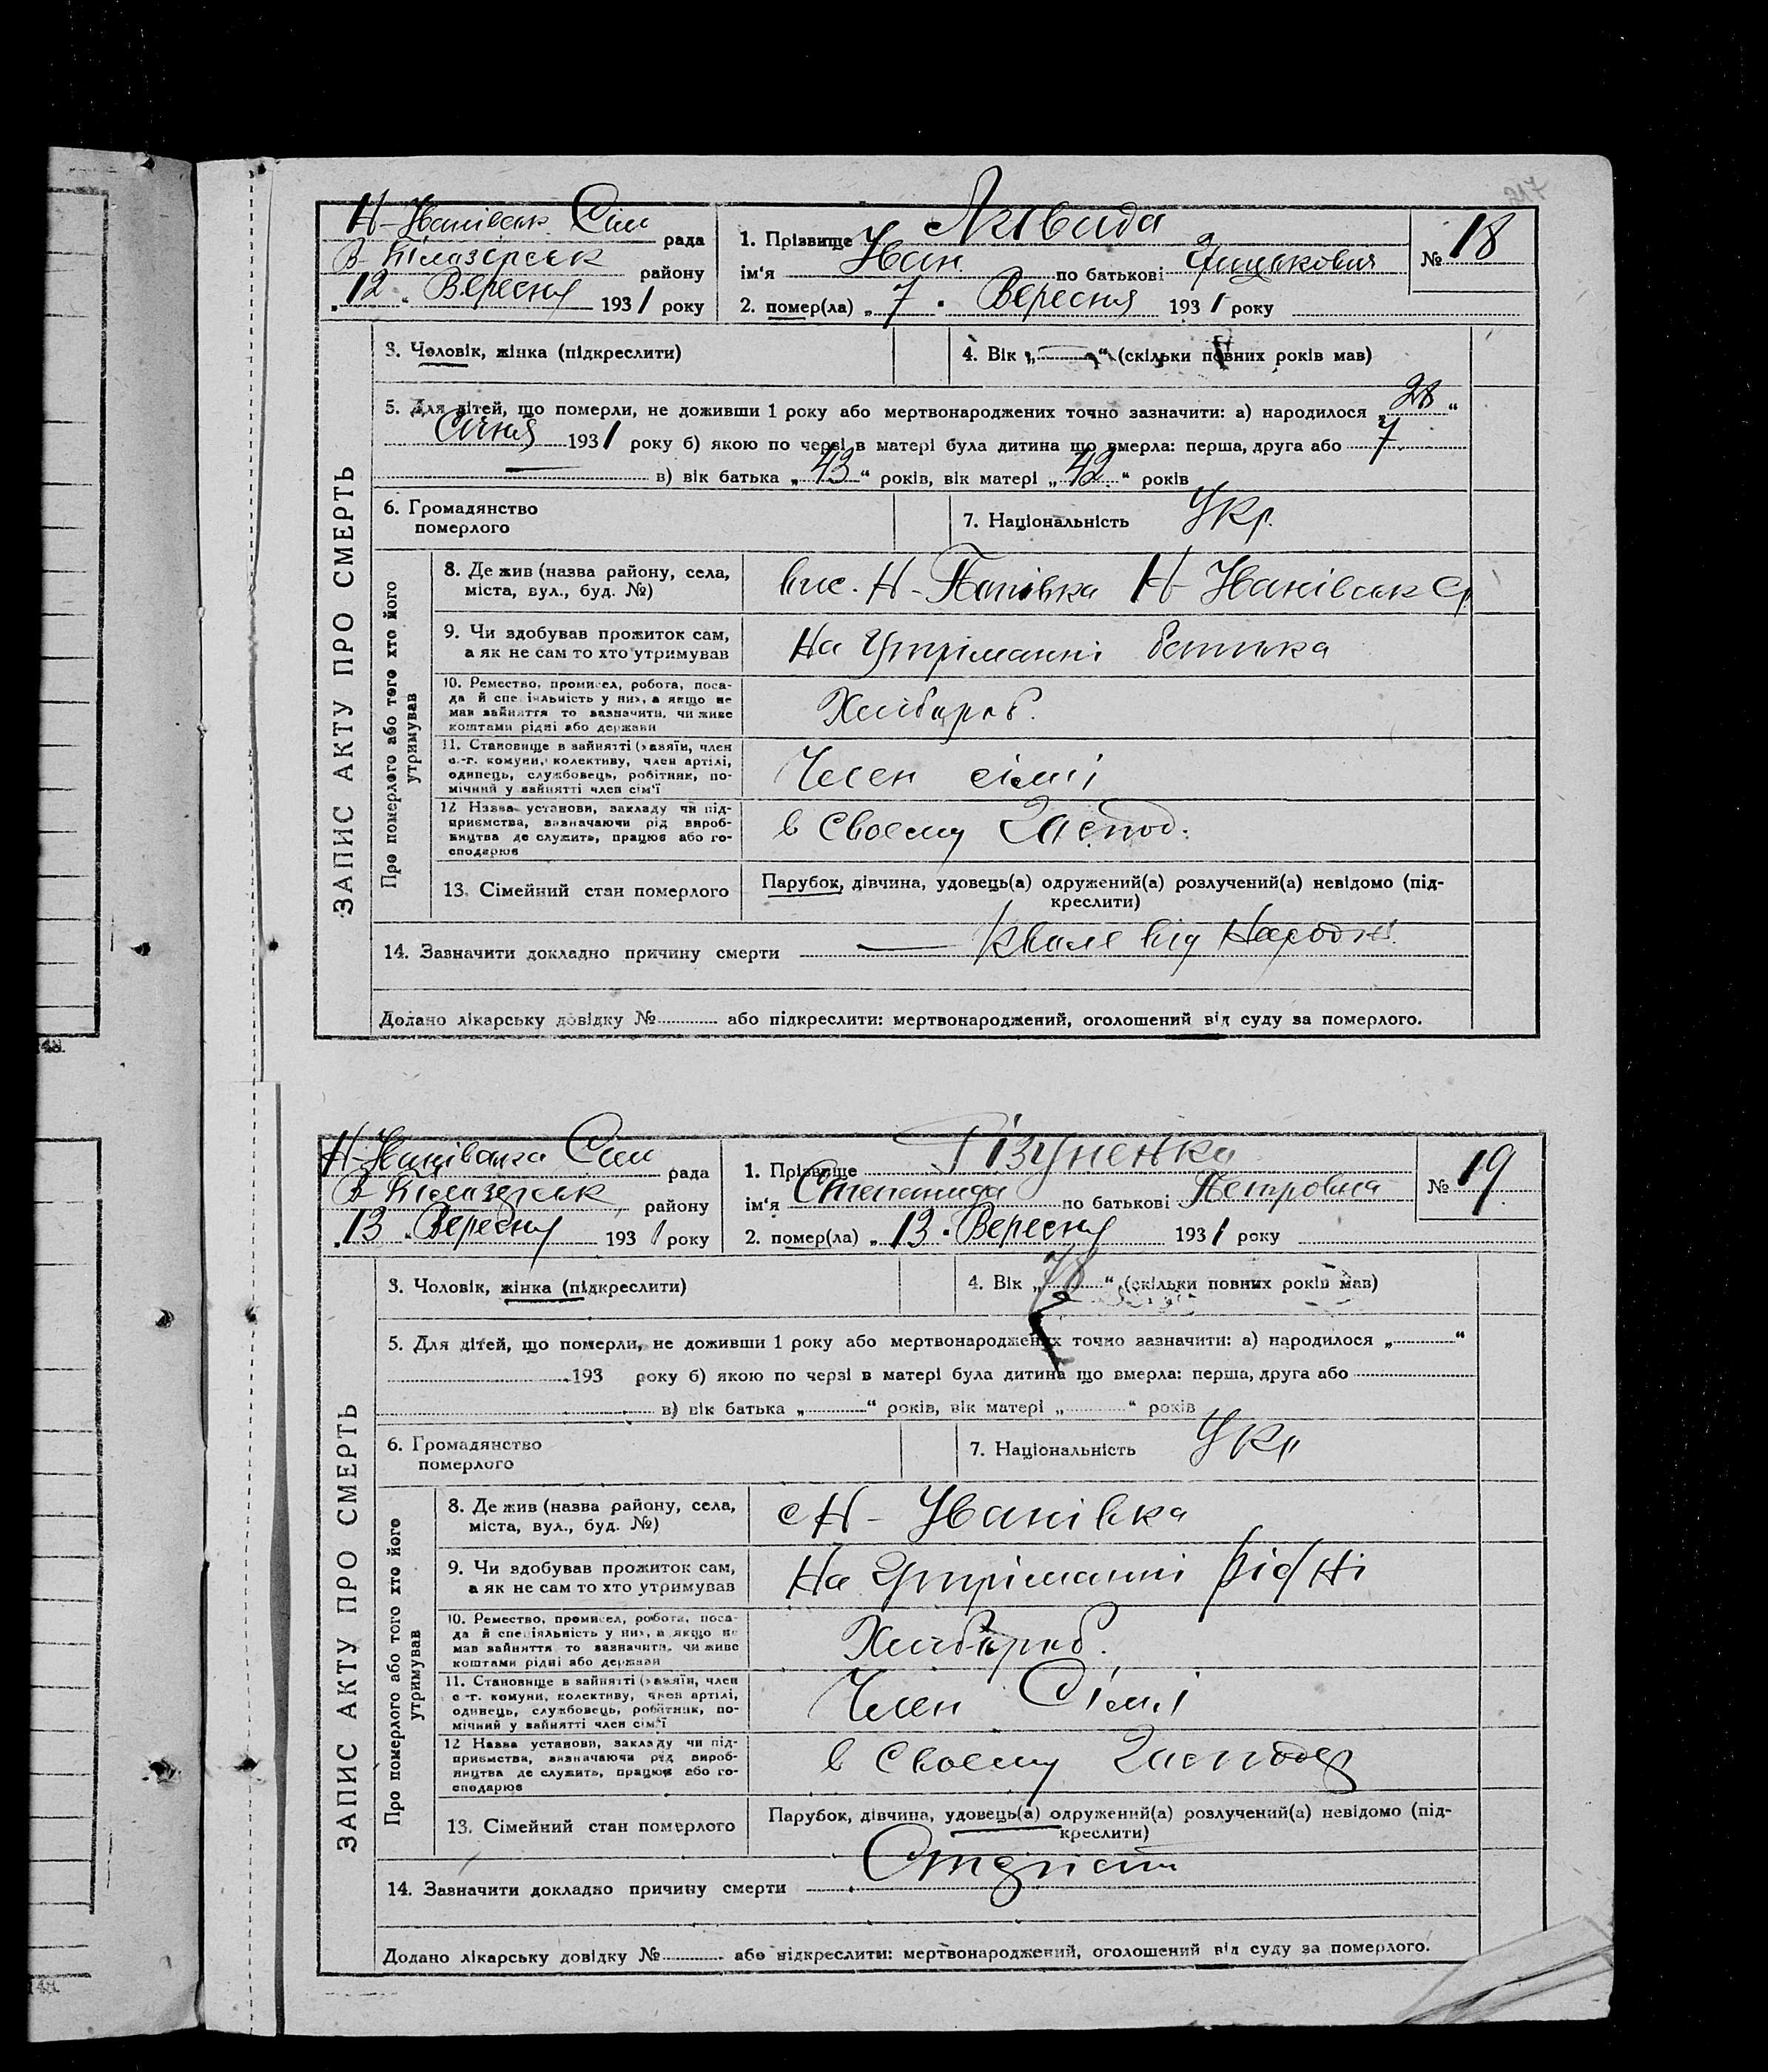 217
Н-Іванівськ. Сіль рада
В-Білазірськ району
„12“ Вересня 1931 року
1. Прізвище
ім'я Іван по батькові
2. помер(ла) „7“ Вересня 1931 року
№ 18
ЗАПИС АКТУ ПРО СМЕРТЬ
3. Чоловік, жінка (підкреслити)
4. Вік „—“ (скільки повних років мав)
5. Для дітей, що померли, не доживши 1 року або мертвонароджених точно зазначити: а) народилося „28“
Січня 1931 року б) якою по черзі в матері була дитина що вмерла: перша, друга або 7
— в) вік батька „43“ років, вік матері „42“ років
6. Громадянство
померлого
7. Національність Укр.
Про померлого або того хто його
утримував
8. Де жив (назва району, села,
міста, вул., буд. №)
вис. Н- Н-Іванівськ Ср
9. Чи здобував прожиток сам,
а як не сам то хто утримував
На Утріманні батька
10. Ремество, промисел, робота, поса-
да й спеціяльність у них, а якщо не
мав зайняття то зазначити, чи живе
коштами рідні або держави
Хлібороб.
11. Становище в зайнятті (хазяїн, член
с.-г. комуни, колективу, член артілі,
одинець, службовець, робітник, по-
мічний у зайнятті член сім'ї
Член сімї
12 Назва установи, закладу чи під-
приємства, визначаючи рід вироб-
ництва де служить, працює або го-
сподарює
в своєму Господ.
13. Сімейний стан померлого
Парубок, дівчина, удовець(а) одружений(а) розлучений(а) невідомо (під-
креслити)
14. Зазначити докладно причину смерти — Кволе від Народж.
Додано лікарську довідку № або підкреслити: мертвонароджений, оголошений від суду за померлого.
Н-Іванівська Сіль рада
В-Білазерськ району
„13“ Вересня 1931 року
1. Прізвище Гізуненко
ім'я Степанида по батькові Петровна
2. помер(ла) „13“ Вересня 1931 року
№ 19
ЗАПИС АКТУ ПРО СМЕРТЬ
3. Чоловік, жінка (підкреслити)
4. Вік „78“ (скільки повних років мав)
5. Для дітей, що померли, не доживши 1 року або мертвонароджених точно зазначити: а) народилося „ “
193 року б) якою по черзі в матері була дитина що вмерла: перша, друга або
в) вік батька „ “ років, вік матері „ “ років
6. Громадянство
померлого
7. Національність Укр
Про померлого або того хто його
утримував
8. Де жив (назва району, села,
міста, вул., буд. №)
с Н- Іванівка
9. Чи здобував прожиток сам,
а як не сам то хто утримував
На Утріманні рідні
10. Ремество, промисел, робота, поса-
да й спеціяльність у них, а якщо не
мав зайняття то зазначити, чи живе
коштами рідні або держави
Хлібороб.
11. Становище в зайнятті (хазяїн, член
с.-г. комуни, колективу, член артілі,
одинець, службовець, робітник, по-
мічний у зайнятті член сім'ї
Член Сімї
12 Назва установи, закладу чи під-
приємства, визначаючи рід вироб-
ництва де служить, працює або го-
сподарює
в своєму Господар
13. Сімейний стан померлого
Парубок, дівчина, удовець(а) одружений(а) розлучений(а) невідомо (під-
креслити)
14. Зазначити докладно причину смерти
Додано лікарську довідку № або підкреслити: мертвонароджений, оголошений від суду за померлого.